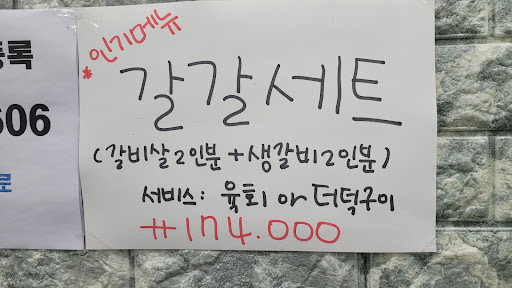 등록
606
로
*인기메뉴
갈갈세트
(갈비살2인분+생갈비2인분)
서비스: 육회 or 더덕구이
₩174.000